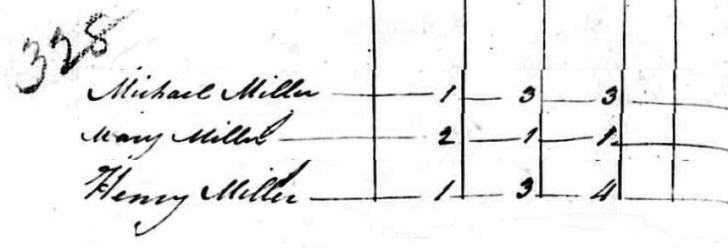 328
Michael Miller 1 3 3
Mary Miller 2 1 1
Henry Miller 1 3 4